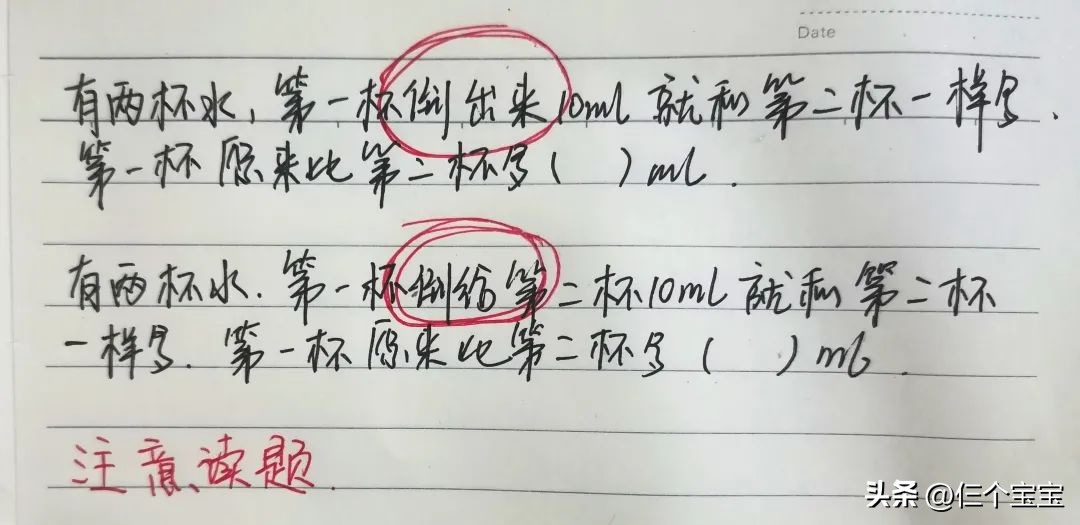 Date
有两杯水,第一杯倒出来10ml就和第二杯一样多.
第一杯原来比第二杯多( )ml.
有两杯水.第一杯倒给第二杯10ml就和第二杯
一样多.第一杯原来比第二杯多( )ml.
注意读题.
头条 @仨个宝宝